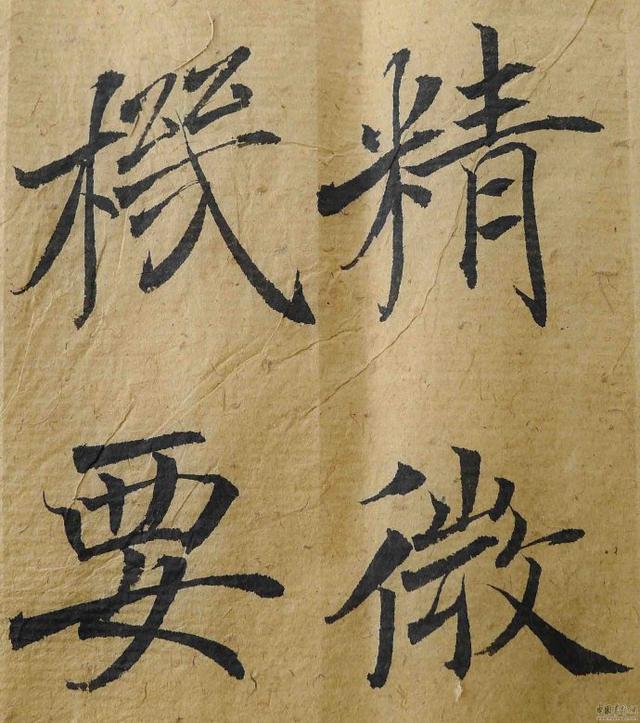 精微
機要